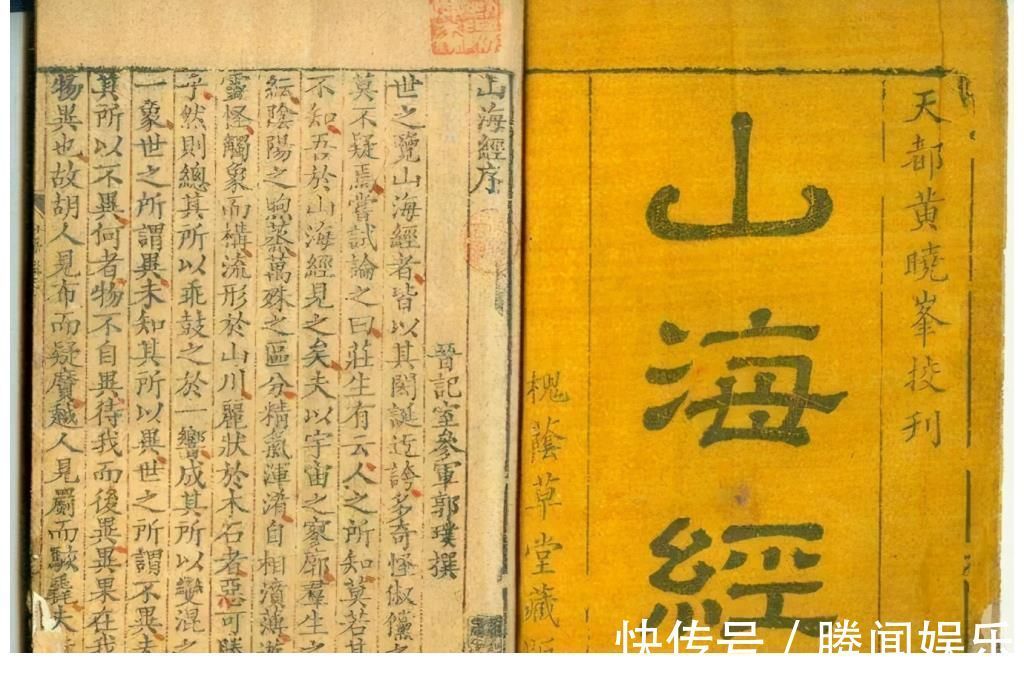 天都黃曉峯挍刊
山海經
槐蔭草堂藏
山海經序
晉記室參軍郭璞撰
世之覽山海經者皆以其閎誕迂誇多奇怪俶儻之
莫不疑焉嘗試論之曰莊生有云人之所知莫若其
不知吾於山海經見之矣夫以宇宙之寥廓羣生之
紜陰陽之煦蒸萬殊之區分精氣渾淆自相濆薄遊
靈怪觸象而構流形於山川麗狀於木石者惡可勝
乎然則總其所以乖鼓之於一響成其所以變混之
一象世之所謂異未知其所以異世之所謂不異未
其所以不異何者物不自異待我而後異異果在我
物異也故胡人見布而疑黂越人見罽而駭毳夫
快传号 / 腾闻娱乐